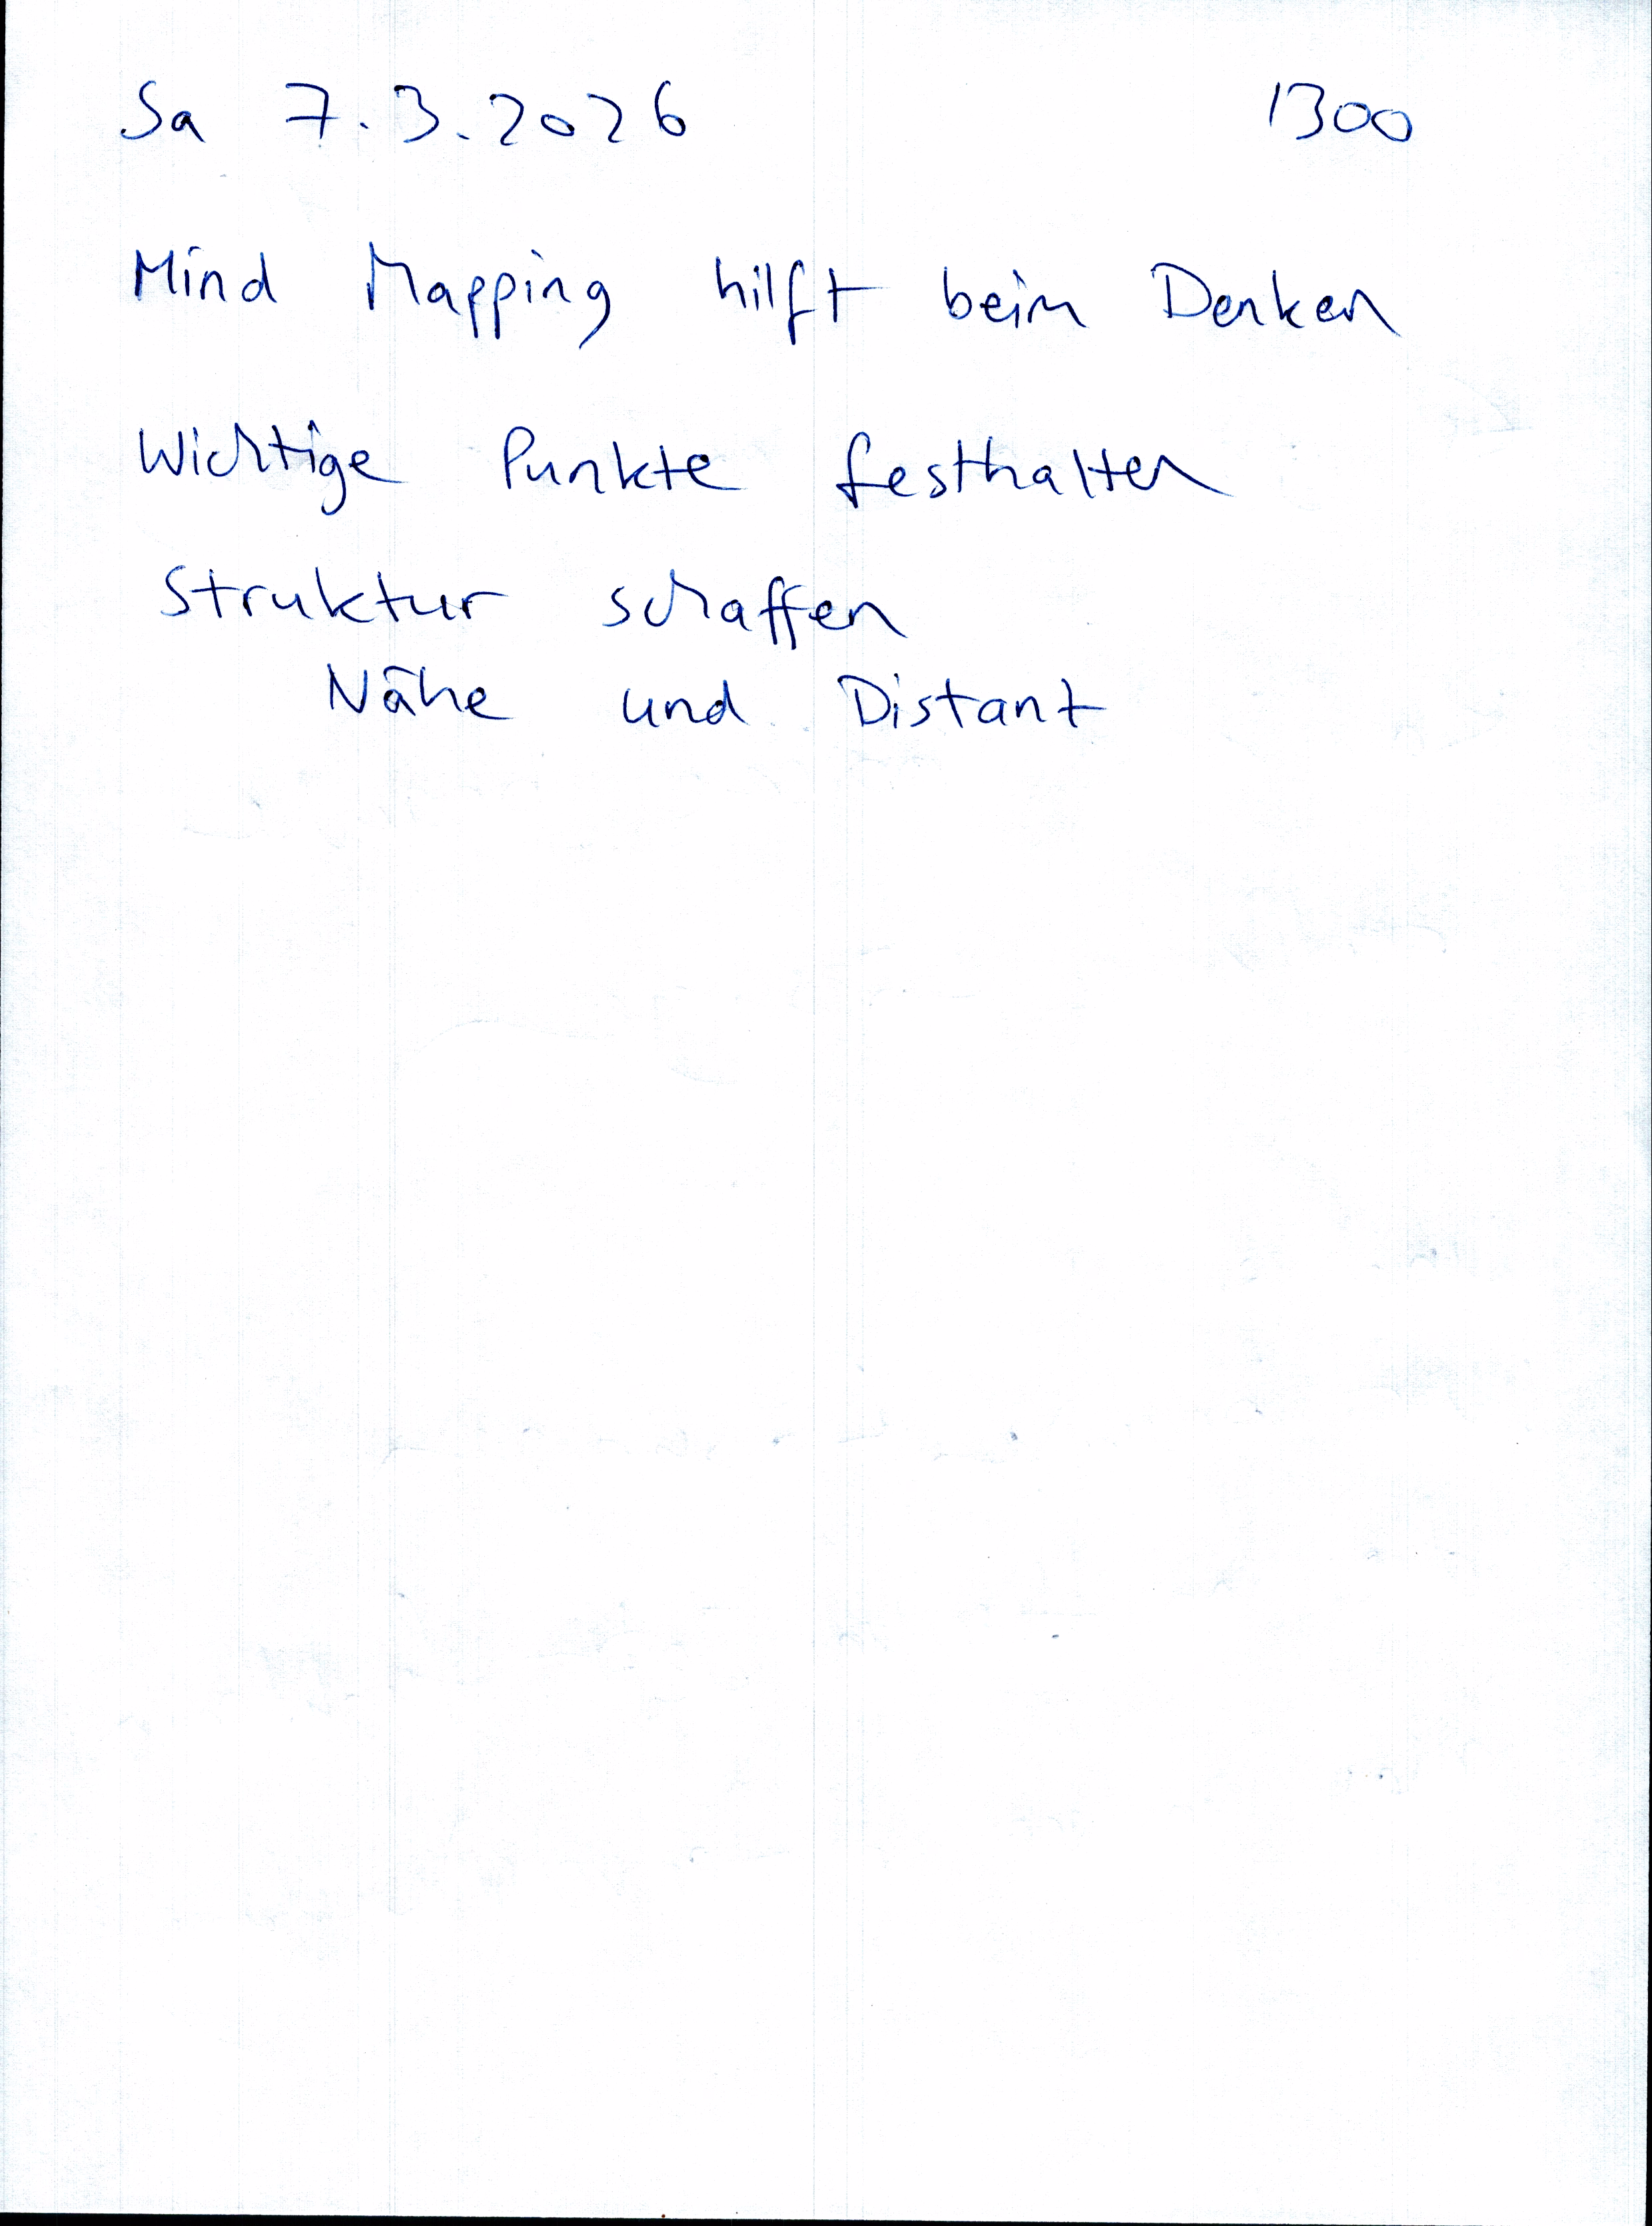 Sa 7.3.2026 1300
Mind Mapping hilft beim Denken
Wichtige Punkte festhalten
Struktur schaffen
Nähe und Distanz